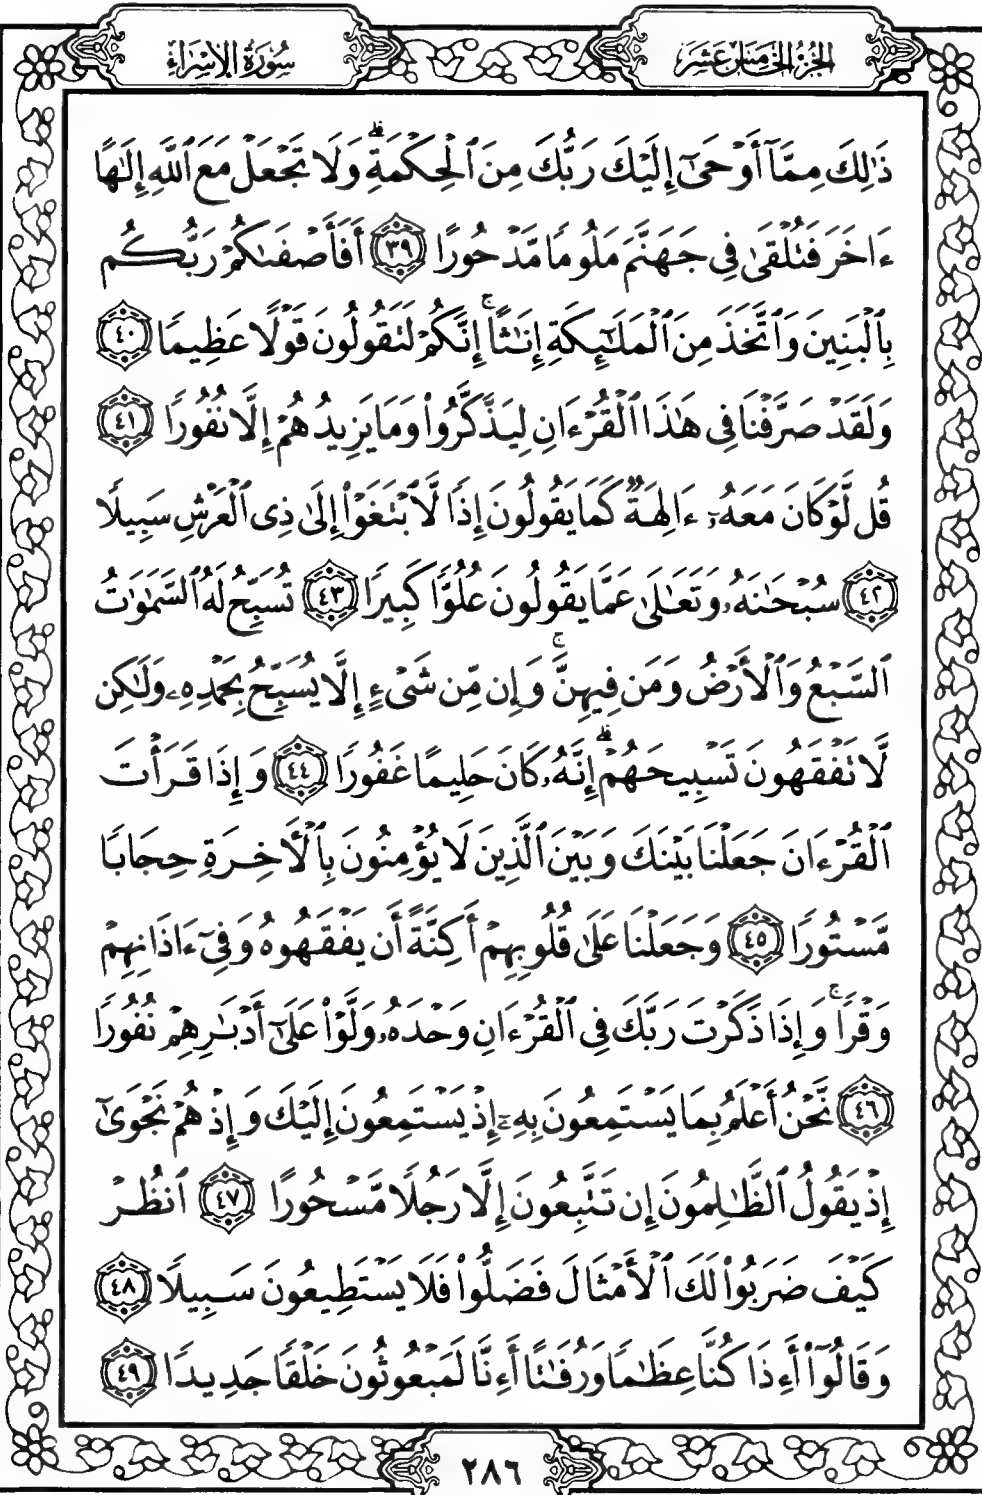 الجُزْءُ الخَامِسَ عَشَرَ
سُورَةُ الإِسْرَاءِ
ذَٰلِكَ مِمَّآ أَوْحَىٰٓ إِلَيْكَ رَبُّكَ مِنَ ٱلْحِكْمَةِۗ وَلَا تَجْعَلْ مَعَ ٱللَّهِ إِلَٰهًا
ءَاخَرَ فَتُلْقَىٰ فِى جَهَنَّمَ مَلُومًا مَّدْحُورًا ٣٩ أَفَأَصْفَىٰكُمْ رَبُّكُم
بِٱلْبَنِينَ وَٱتَّخَذَ مِنَ ٱلْمَلَٰٓئِكَةِ إِنَٰثًاۚ إِنَّكُمْ لَتَقُولُونَ قَوْلًا عَظِيمًا ٤٠
وَلَقَدْ صَرَّفْنَا فِى هَٰذَا ٱلْقُرْءَانِ لِيَذَّكَّرُوا۟ وَمَا يَزِيدُهُمْ إِلَّا نُفُورًا ٤١
قُل لَّوْ كَانَ مَعَهُۥٓ ءَالِهَةٌ كَمَا يَقُولُونَ إِذًا لَّٱبْتَغَوْا۟ إِلَىٰ ذِى ٱلْعَرْشِ سَبِيلًا
٤٢ سُبْحَٰنَهُۥ وَتَعَٰلَىٰ عَمَّا يَقُولُونَ عُلُوًّا كَبِيرًا ٤٣ تُسَبِّحُ لَهُ ٱلسَّمَٰوَٰتُ
ٱلسَّبْعُ وَٱلْأَرْضُ وَمَن فِيهِنَّۚ وَإِن مِّن شَىْءٍ إِلَّا يُسَبِّحُ بِحَمْدِهِۦ وَلَٰكِن
لَّا تَفْقَهُونَ تَسْبِيحَهُمْۗ إِنَّهُۥ كَانَ حَلِيمًا غَفُورًا ٤٤ وَإِذَا قَرَأْتَ
ٱلْقُرْءَانَ جَعَلْنَا بَيْنَكَ وَبَيْنَ ٱلَّذِينَ لَا يُؤْمِنُونَ بِٱلْأَخِرَةِ حِجَابًا
مَّسْتُورًا ٤٥ وَجَعَلْنَا عَلَىٰ قُلُوبِهِمْ أَكِنَّةً أَن يَفْقَهُوهُ وَفِىٓ ءَاذَانِهِمْ
وَقْرًاۚ وَإِذَا ذَكَرْتَ رَبَّكَ فِى ٱلْقُرْءَانِ وَحْدَهُۥ وَلَّوْا۟ عَلَىٰٓ أَدْبَٰرِهِمْ نُفُورًا
٤٦ نَّحْنُ أَعْلَمُ بِمَا يَسْتَمِعُونَ بِهِۦٓ إِذْ يَسْتَمِعُونَ إِلَيْكَ وَإِذْ هُمْ نَجْوَىٰٓ
إِذْ يَقُولُ ٱلظَّٰلِمُونَ إِن تَتَّبِعُونَ إِلَّا رَجُلًا مَّسْحُورًا ٤٧ ٱنظُرْ
كَيْفَ ضَرَبُوا۟ لَكَ ٱلْأَمْثَالَ فَضَلُّوا۟ فَلَا يَسْتَطِيعُونَ سَبِيلًا ٤٨
وَقَالُوٓا۟ أَءِذَا كُنَّا عِظَٰمًا وَرُفَٰتًا أَءِنَّا لَمَبْعُوثُونَ خَلْقًا جَدِيدًا ٤٩
٢٨٦